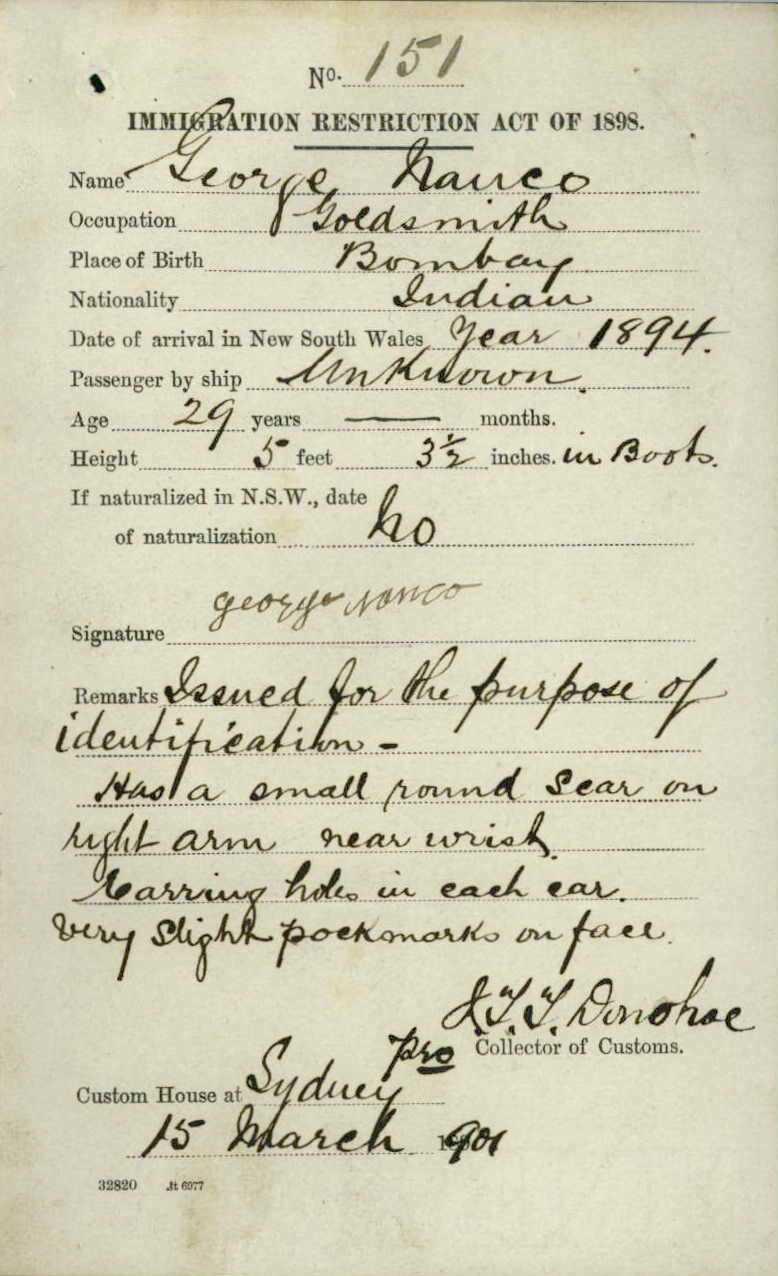 No. 151
IMMIGRATION RESTRICTION ACT OF 1898.
Name George Nanco
Occupation Goldsmith
Place of Birth Bombay
Nationality Indian
Date of arrival in New South Wales Year 1894.
Passenger by ship Unknown.
Age 29 years — months.
Height 5 feet 3½ inches. in Boots.
If naturalized in N.S.W., date
of naturalization No
george nanco
Signature
Remarks Issued for the purpose of
identification -
Has a small round scar on
right arm near wrist.
Earring holes in each ear.
Very slight pockmarks on face.
Donohoe
pro Collector of Customs.
Custom House at Sydney
15 March 1901
32820 6977